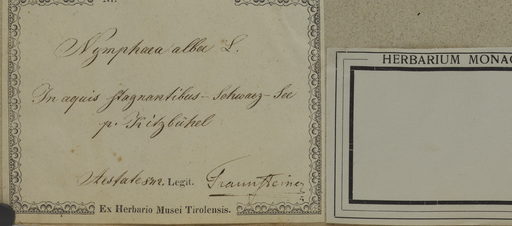 Nymphaea alba L.
In aquis stagnantibus - Schwarz-See
p. Kitzbühel
Aestate 842. Legit. Traunsteiner
Ex Herbario Musei Tirolensis.
HERBARIUM MONAC